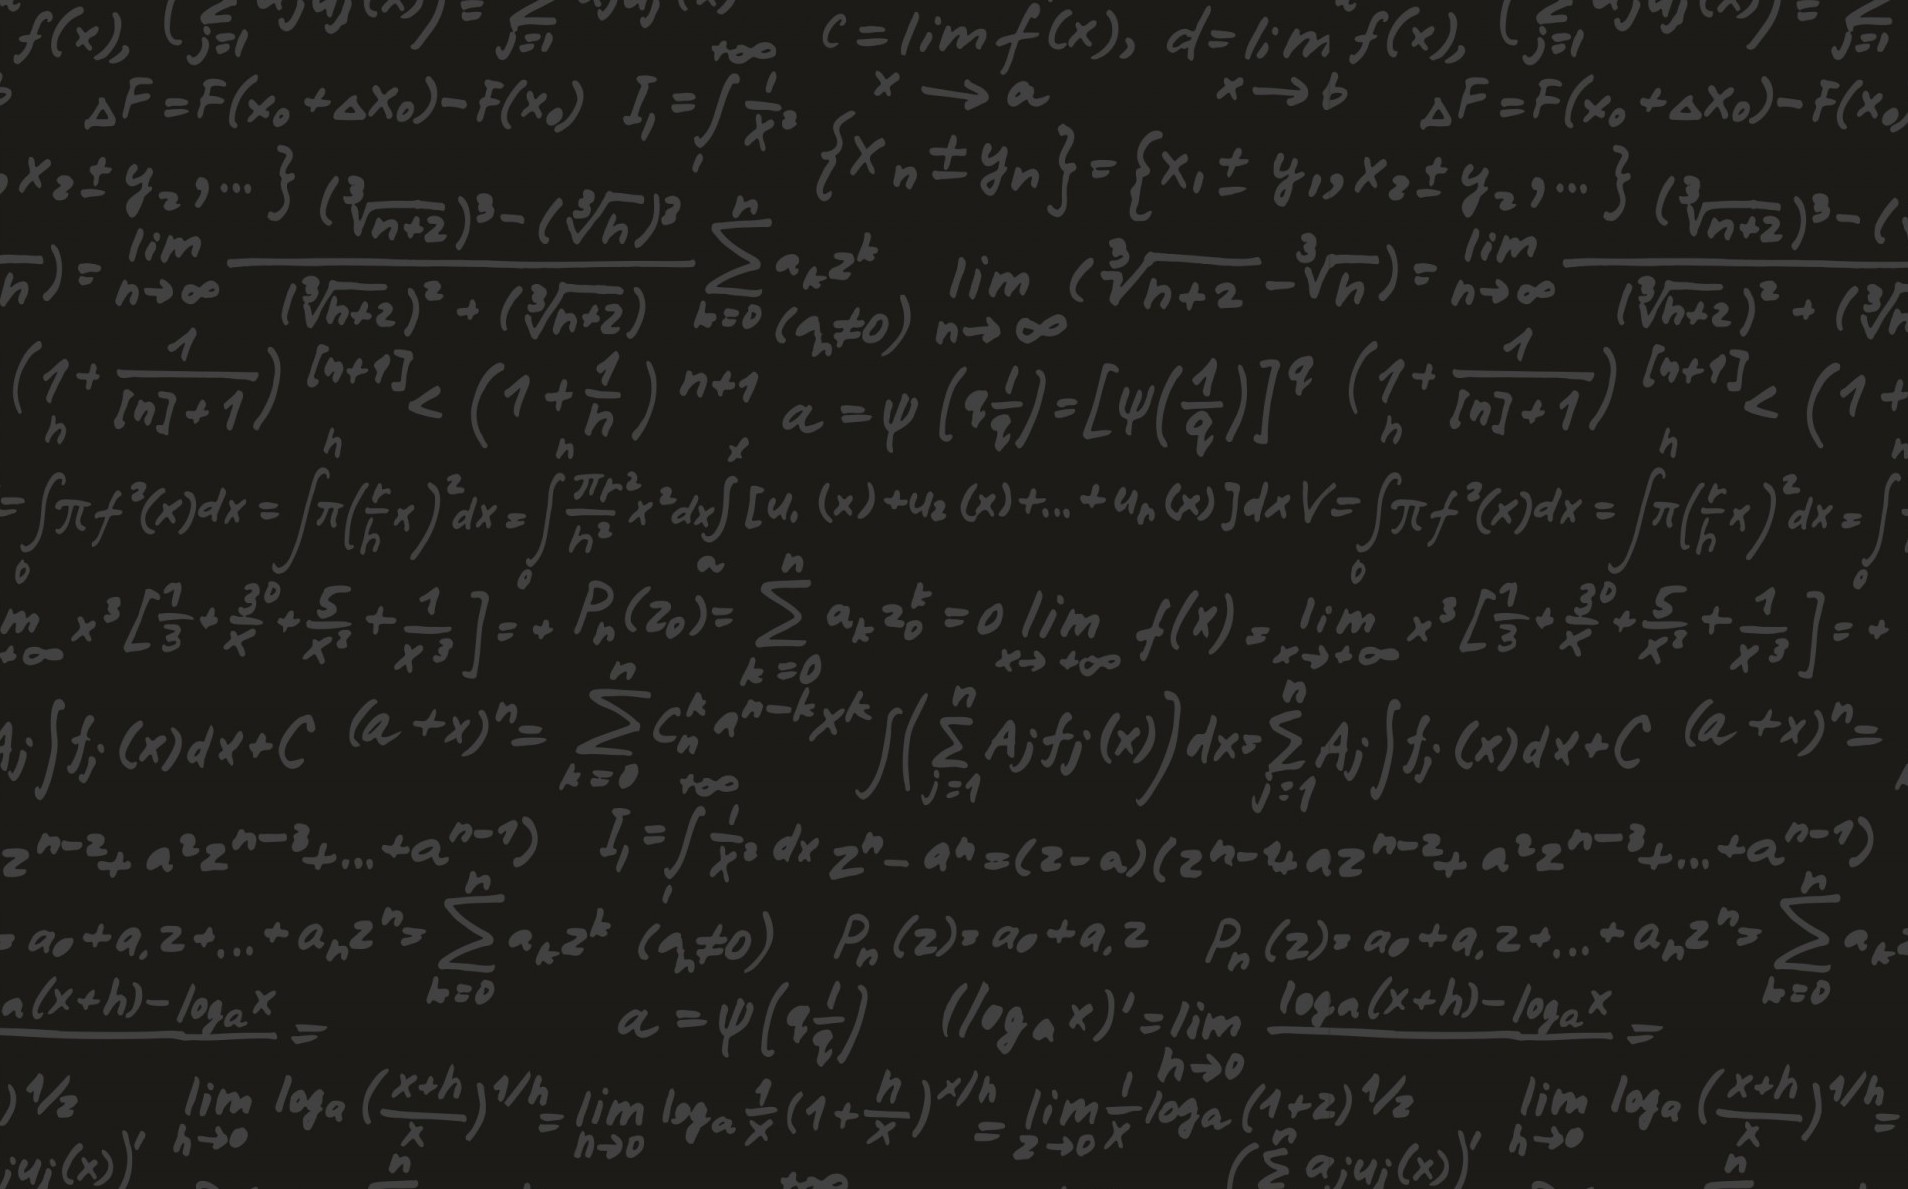 f(x), (∑ j=1 ajuj(x)) = ∑ j=1 ajuj(x) +∞ c = lim x→a f(x), d = lim x→b f(x), (∑ j=1 ajuj(x)) = ∑ j=1
ΔF = F(x₀ + Δx₀) − F(x₀) I₁ = ∫₁ 1/x² ΔF = F(x₀ + Δx₀) − F(x₀)
, x₂ ± y₂, ...} {xₙ ± yₙ} = {x₁ ± y₁, x₂ ± y₂, ...}
n) = lim n→∞ ((∛(n+2))³ − (∛n)³)/((∛(n+2))² + (∛(n+2)) ∑ k=0 n aₖzᵏ (aₙ≠0) lim n→∞ (∛(n+2) − ∛n) = lim n→∞ ((∛(n+2))³ − (/((∛(n+2))² + (∛n
(1 + 1/([n]+1))^[n+1] < (1 + 1/n)^n+1 a = ψ(q 1/q) = [ψ(1/q)]^q (1 + 1/([n]+1))^[n+1] < (1 +
= ∫₀ʰ πf²(x)dx = ∫ʰ π(r/h x)²dx = ∫₀ʰ πr²/h² x²dx ∫ₐˣ [u₁(x) + u₂(x) + ... + uₙ(x)]dx V = ∫₀ʰ πf²(x)dx = ∫ʰ π(r/h x)²dx = ∫₀
m +∞ x³[1/3 + 30/x + 5/x² + 1/x³] = + Pₙ(z₀) = ∑ k=0 n aₖz₀ᵏ = 0 lim x→+∞ f(x) = lim x→+∞ x³[1/3 + 30/x + 5/x² + 1/x³] = +
Aj ∫fj(x)dx + C (a + x)ⁿ = ∑ k=0 n Cₙᵏ aⁿ⁻ᵏxᵏ ∫(∑ j=1 n Aj fj(x))dx = ∑ j=1 n Aj ∫fj(x)dx + C (a + x)ⁿ =
zⁿ⁻² + a²zⁿ⁻³ + ... + aⁿ⁻¹) I₁ = ∫₁ +∞ 1/x² dx zⁿ − aⁿ = (z − a)(zⁿ⁻¹ + azⁿ⁻² + a²zⁿ⁻³ + ... + aⁿ⁻¹)
= a₀ + a₁z + ... + aₙzⁿ = ∑ k=0 n aₖzᵏ (aₙ≠0) Pₙ(z) = a₀ + a₁z Pₙ(z) = a₀ + a₁z + ... + aₙzⁿ = ∑ k=0 n aₖz
a(x+h) − logₐx = a = ψ(q 1/q) (logₐx)' = lim h→0 (logₐ(x+h) − logₐx) =
)1/z lim h→0 logₐ((x+h)/x)^1/h = lim h→0 logₐ 1/x (1 + h/x)^x/h = lim z→0 1/x logₐ(1+z)1/z lim h→0 logₐ((x+h)/x)^1/h =
juj(x))' n +∞ (∑ n ajuj(x))' n